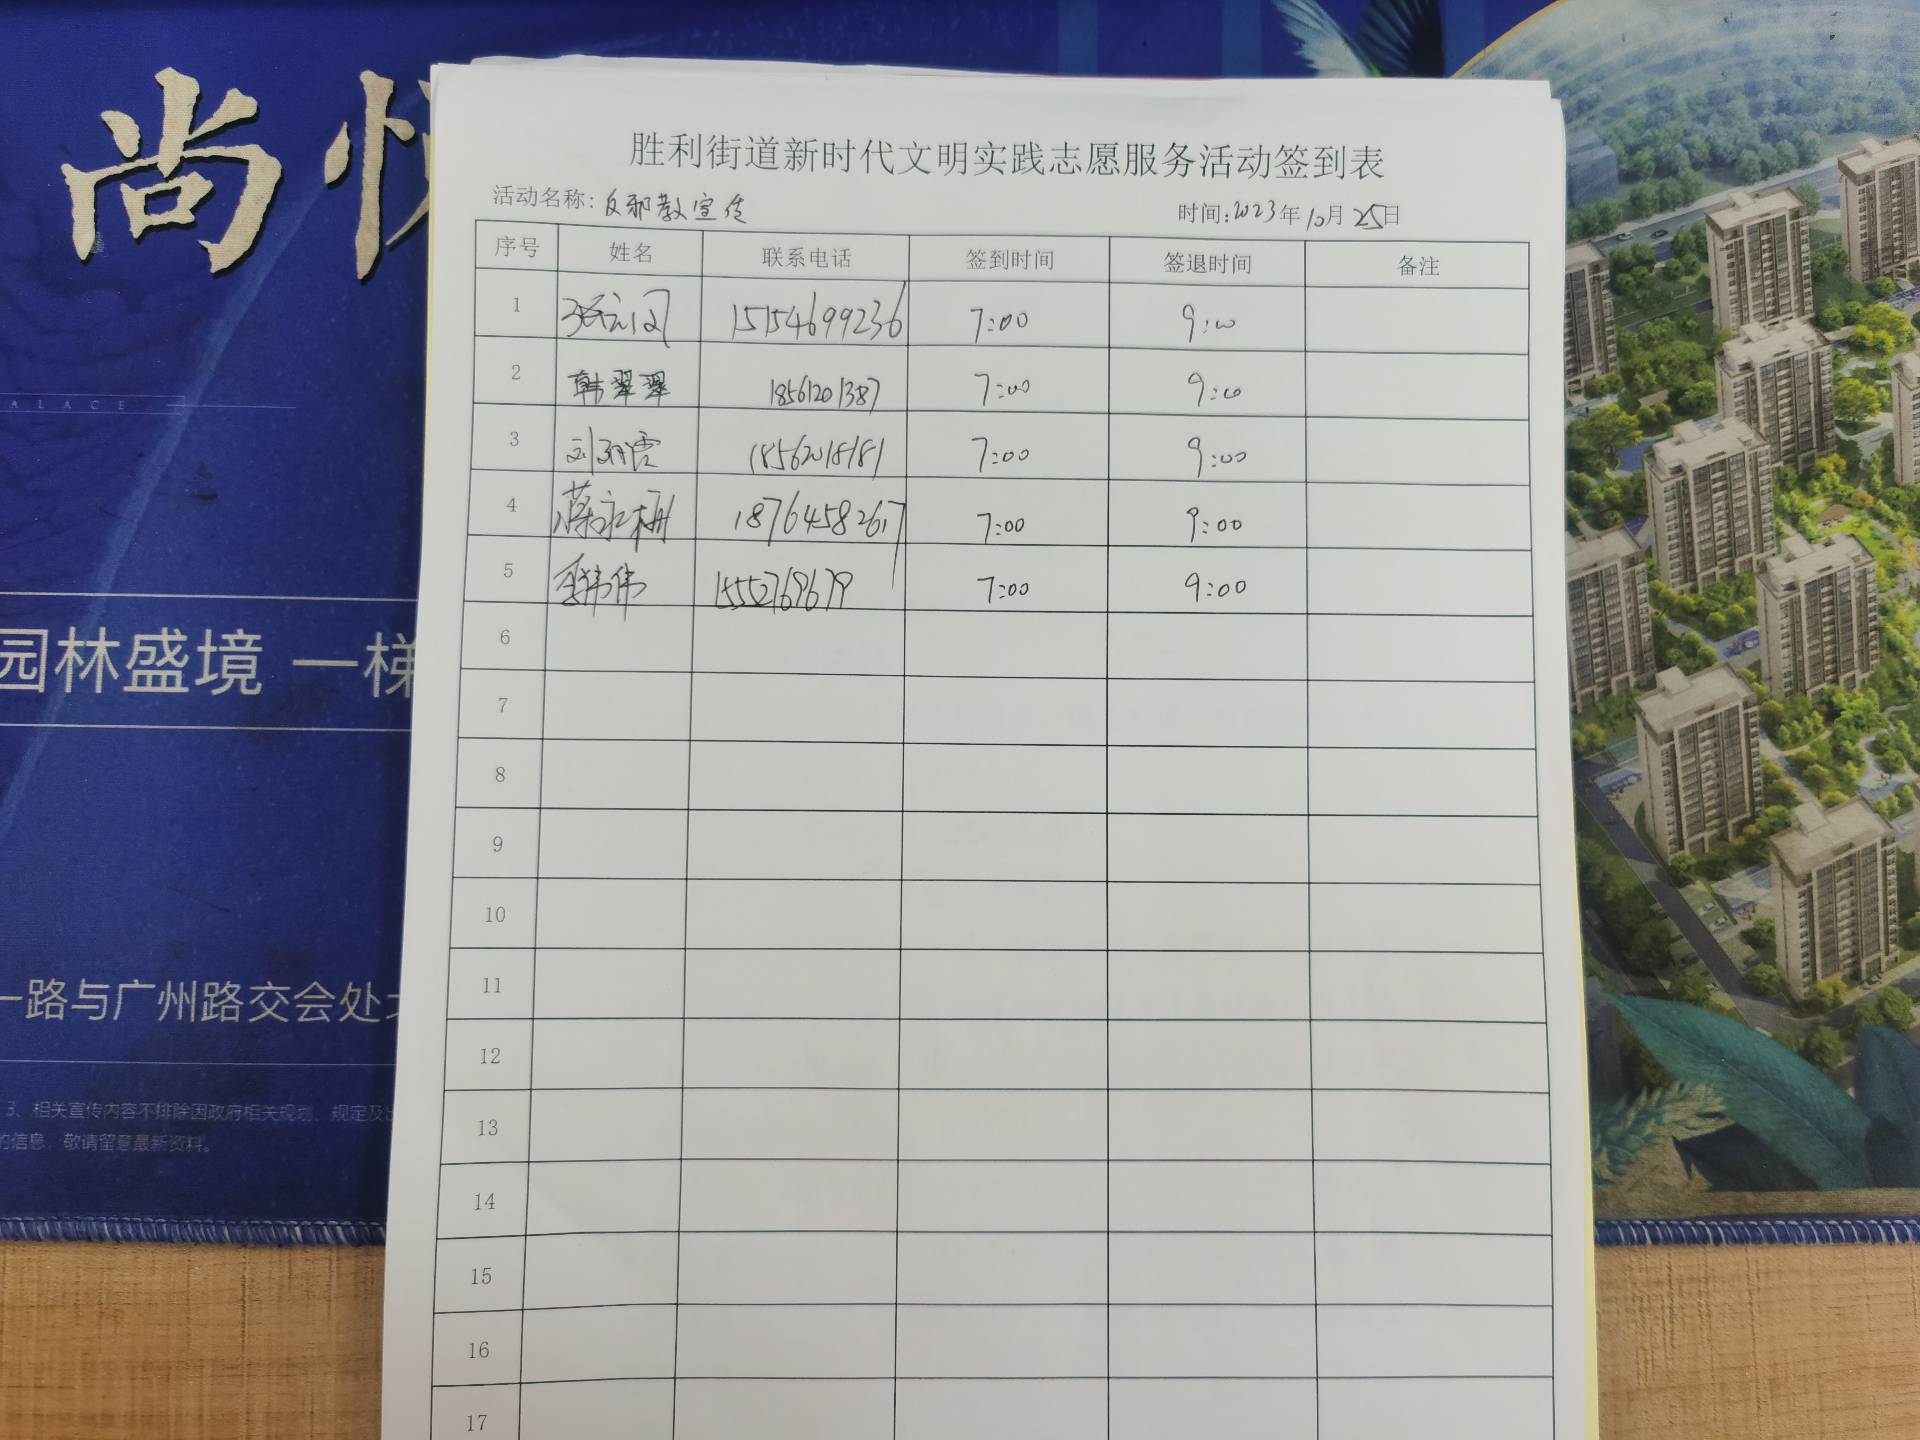 尚悦
ALACE
园林盛境 一梯
一路与广州路交会处北
3、相关宣传内容不排除因政府相关规划、规定及
的信息，敬请留意最新资料。
胜利街道新时代文明实践志愿服务活动签到表
活动名称：反邪教宣传 时间：2023年10月25日
序号 姓名 联系电话 签到时间 签退时间 备注
1 15154699236 7:00 9:00
2 韩翠翠 18561201387 7:00 9:00
3 18562018181 7:00 9:00
4 18764582617 7:00 9:00
5 15552769679 7:00 9:00
6
7
8
9
10
11
12
13
14
15
16
17